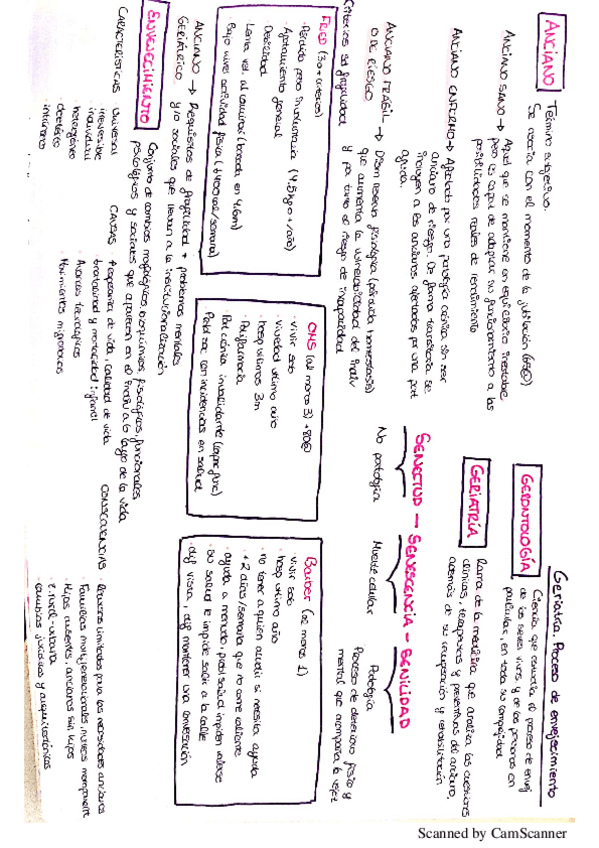 Geriatría. Proceso de envejecimiento
GERONTOLOGÍA
Ciencia que estudia el proceso de envej
de los seres vivos, y de las personas en
particular, en toda su complejidad
GERIATRÍA
Rama de la medicina que analiza las cuestiones
clínicas, terapéuticas y preventivas del anciano,
además de su recuperación y rehabilitación
SENECTUD → SENESCENCIA - SENILIDAD
No patológica
Muerte celular
Patológica
Proceso de deterioro físico y
mental que acompaña la vejez
ANCIANO
Término subjetivo.
Se asocia con el momento de la jubilación (65@)
ANCIANO SANO →
Aquel que se mantiene en equilibrio inestable
pero es capaz de adaptar su funcionamiento a las
posibilidades reales de rendimiento
ANCIANO ENFERMO →
Afectado por una patología crónica sin ser
anciano de riesgo. De forma transitoria se
incluyen a los ancianos afectados por una pat
aguda.
ANCIANO FRÁGIL
O DE RIESGO →
Dism reserva fisiológica (pérdida homeostasis)
que aumenta la vulnerabilidad del indiv
y por tanto el riesgo de incapacidad
Criterios de fragilidad
FRIED (3 o + criterios)
· Pérdida peso involuntaria (4,5kg o + /año)
· Agotamiento general
· Debilidad
· Lenta vel. al caminar (basada en 4.6m)
· Bajo nivel actividad física
OMS (al menos 3) +80@
· vivir solo
· viudedad último año
· hosp últimos 3m
· Polifarmacia
· Pat crónica invalidante
· Probl soc con incidencias en salud
Barber (al menos 1)
· vivir solo
· hosp último año
· no tener a quien acudir si necesita ayuda
· + 2 días/semana que no come caliente
· ayuda a menudo
· probl salud impiden valerse
· su salud le impide salir a la calle
· dif vista, dif mantener una conversación
ANCIANO
GERIÁTRICO →
Requisitos de fragilidad + problemas mentales
y/o sociales que llevan a la institucionalización
ENVEJECIMIENTO
Conjunto de cambios morfológicos, bioquímicos, fisiológicos, funcionales,
psicológicos y sociales que aparecen en el indiv a lo largo de la vida
CARACTERÍSTICAS
· Universal
· irreversible
· individual
· heterogéneo
· deletéreo
· intrínseco
CAUSAS
· ↑ esperanza de vida, calidad de vida
· ↓ natalidad y mortalidad infantil
· Avances tecnológicos
· Movimientos migratorios
CONSECUENCIAS
· Recursos limitados para las necesidades ancianos
· Familias multigeneracionales
· Hijos ausentes, ancianos sin hijos
· Cambios jurídicos y arquitectónicos
Scanned by CamScanner